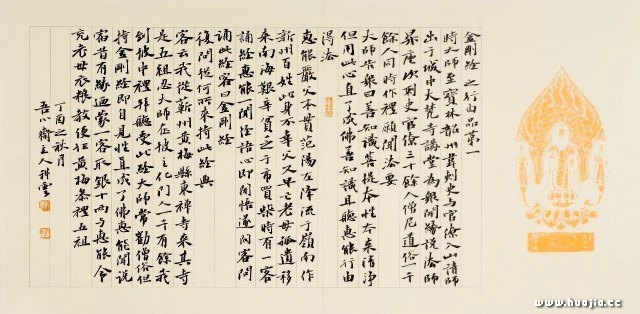 金剛經之行由品第一
時大師至寶林韶州韋刺史与官僚入山請師
出于城中大梵寺講堂為眾開緣說法師
昇座次刺史官僚三十餘人僧尼道俗一千
餘人同時作禮願聞法要
大師告眾曰善知識菩提本性本來清淨
但用此心直了成佛善知識且聽惠能行由
得法
惠能嚴父本貫范陽左降流于嶺南作
新州百姓此身不幸父又早亡老母孤遺移
來南海艱辛貧乏于市買柴時有一客
誦經惠能一聞經語心即開悟遂問客問
誦此經客曰金剛經
復問從何所來持此經典
客云我從蘄州黃梅縣東禪寺來其寺
是五祖忍大師在彼主化門人一千有餘我
到彼中裡拜聽受此經大師常勸僧俗但
持金剛經即自見性直成了佛惠能聞說
宿昔有緣通蒙一客取銀十兩与惠能令
充老母衣粮教便往黃梅参裡五祖
丁酉之秋月
吾心齋主人科雲
www.huajia.cc